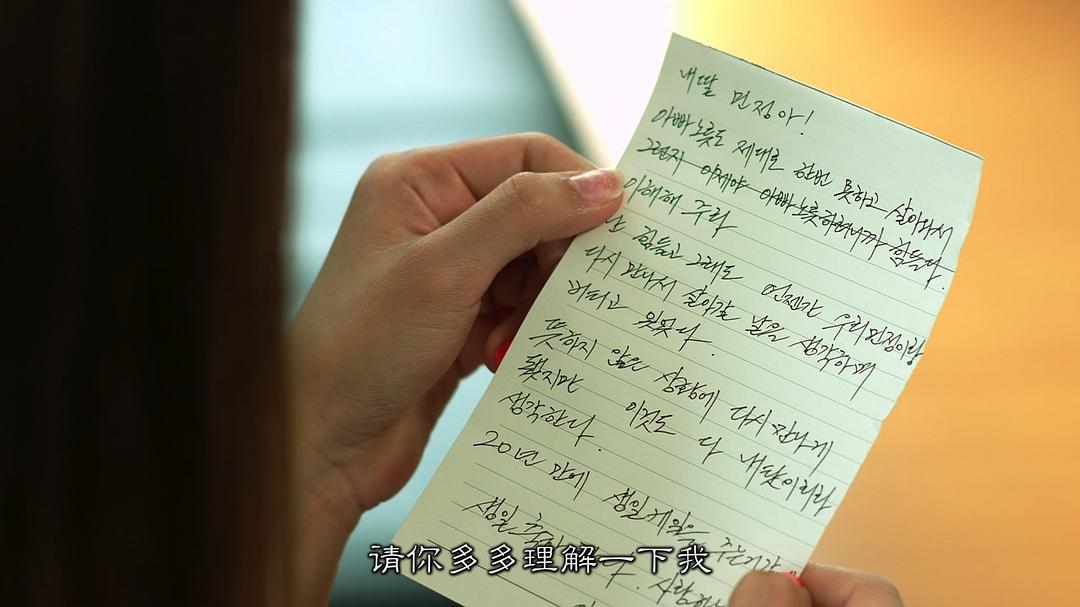 내딸 민정아!
아빠노릇도 제대로 한번 못하고 살아와서
그런지 이제야 아빠노릇하려니까 힘들다.
이해해 주라
난 힘들고 그래도 언젠간 우리민정이랑
다시 만나서 살아갈 날을 생각하며
버티고
뜻하지 않은 상황에 다시 만나게
됐지만 이것도 다 내탓이리라
생각한다.
20년 만에 생일케익을
생일 사랑
请你多多理解一下我